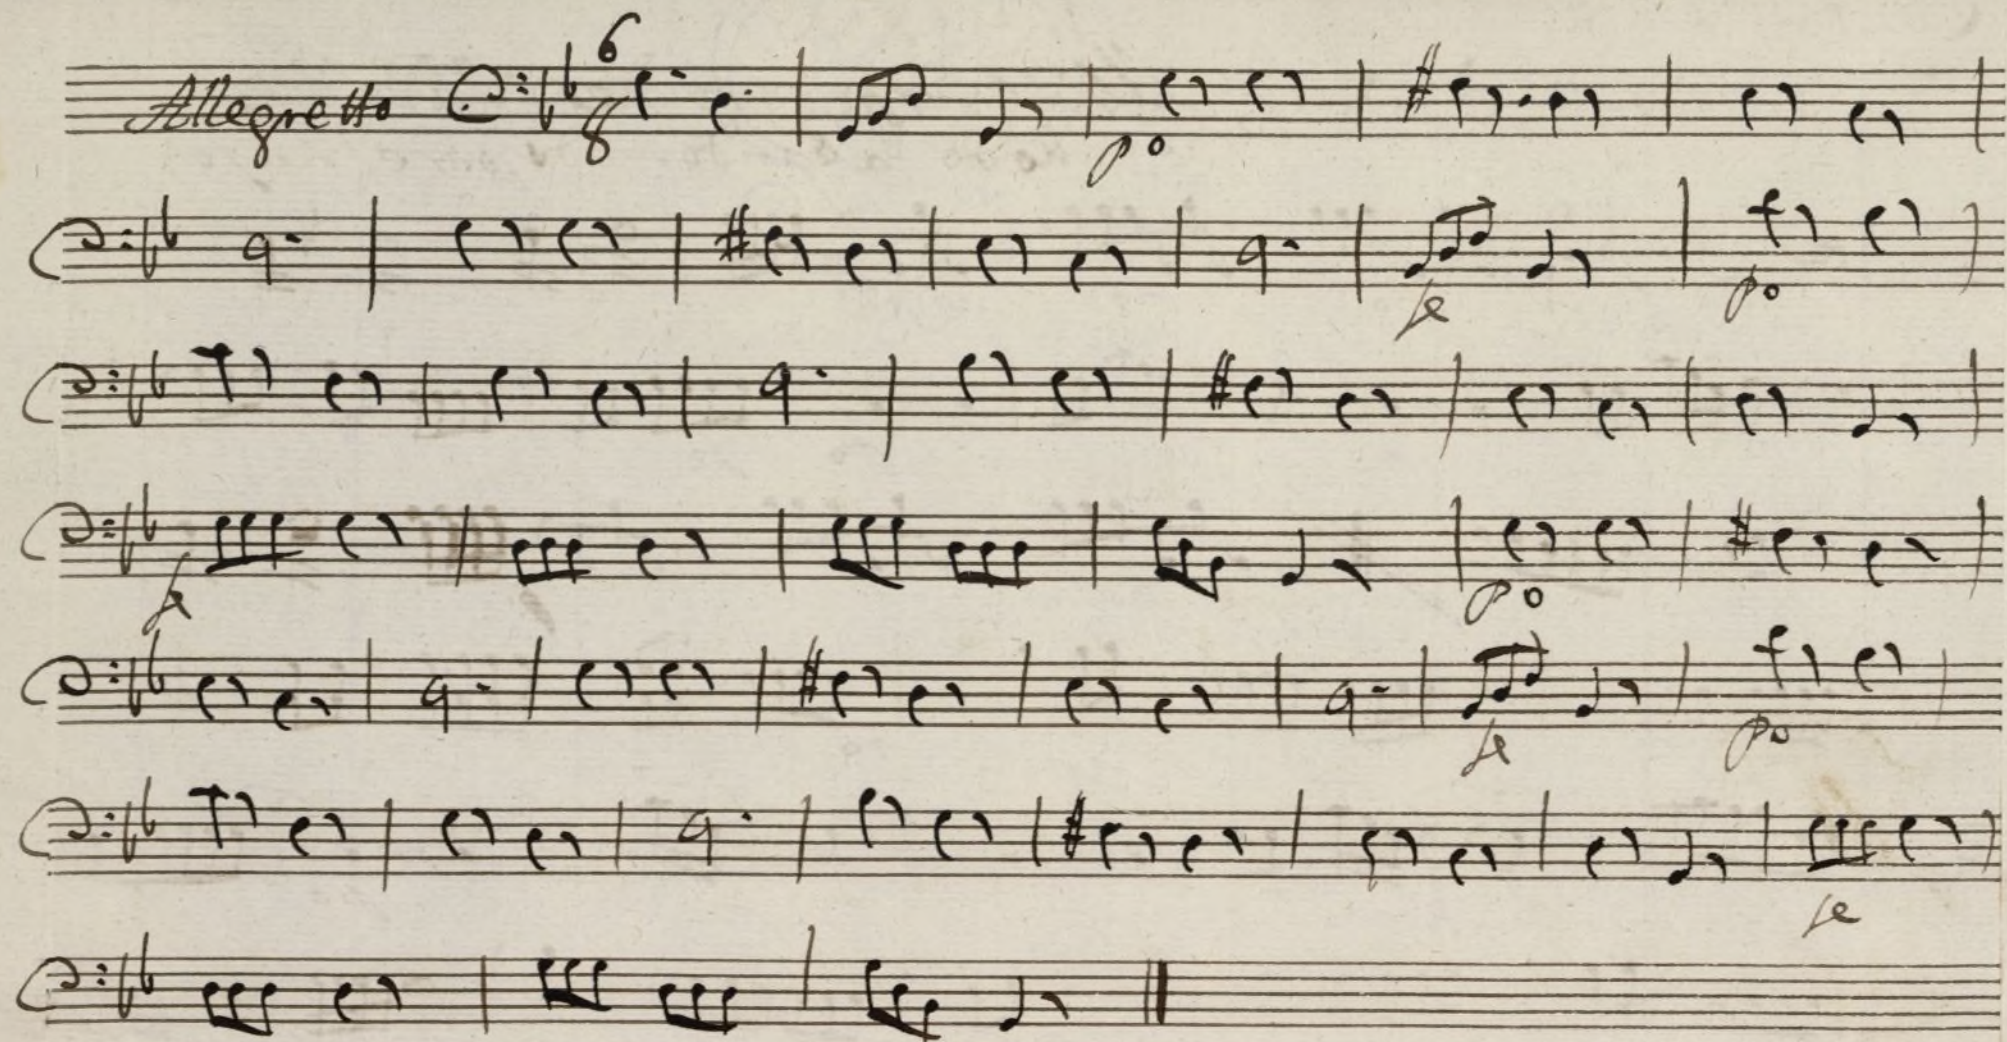 Allegretto 6 8
po
fe
po
f
po
fe
po
fe